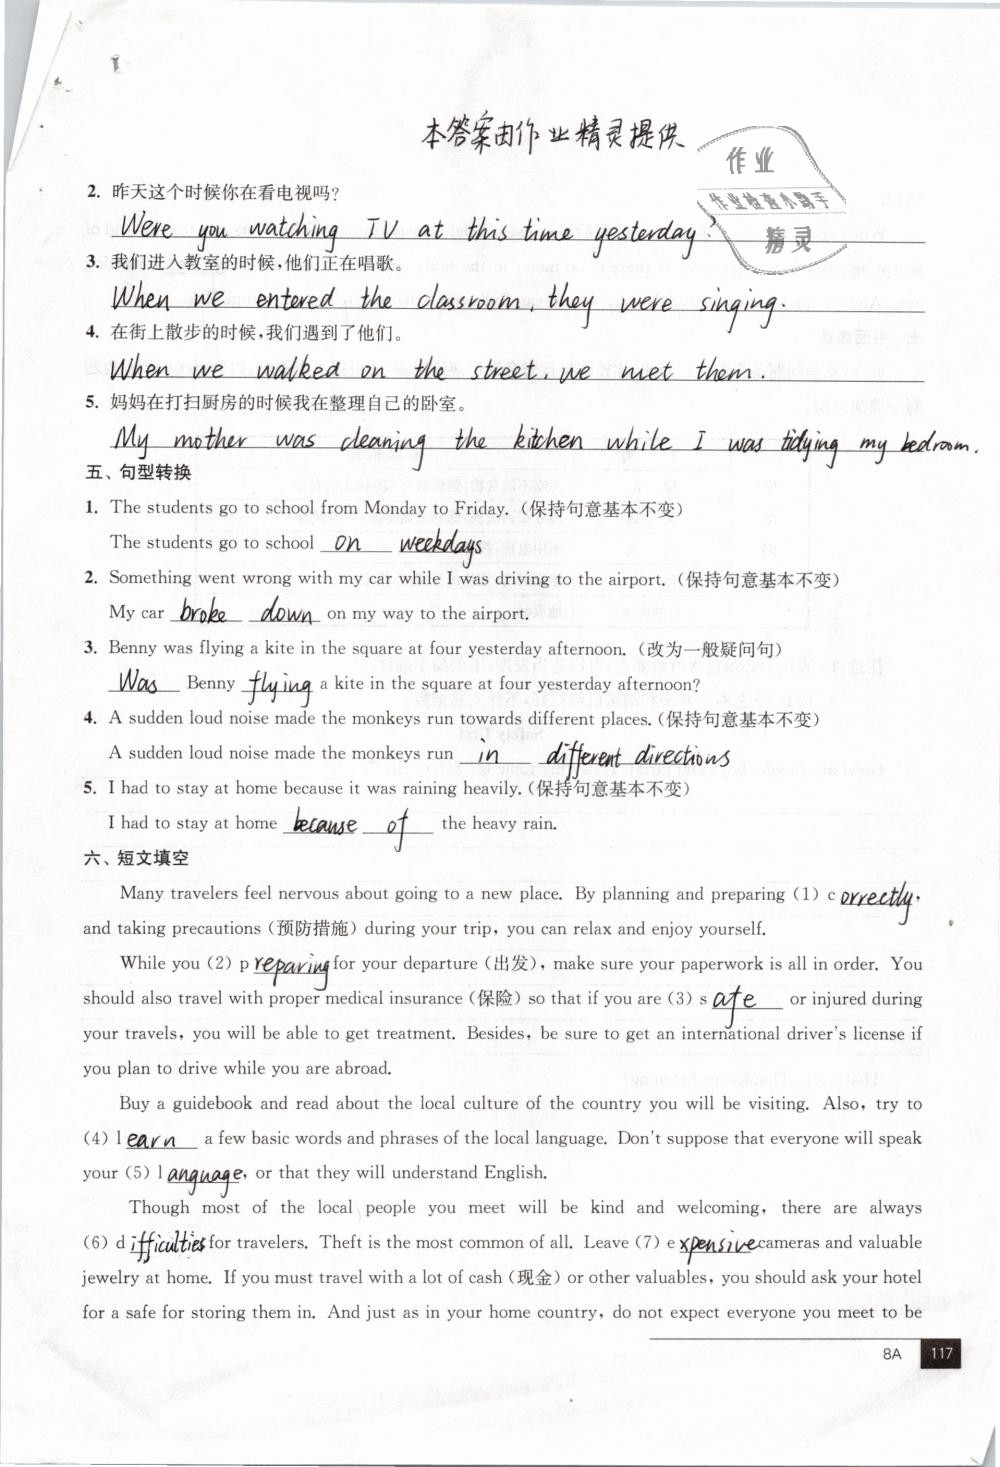 本答案由作业精灵提供
作业
作业检查小助手
精灵
2. 昨天这个时候你在看电视吗?
Were you watching TV at this time yesterday?
3. 我们进入教室的时候,他们正在唱歌。
When we entered the classroom, they were singing.
4. 在街上散步的时候,我们遇到了他们。
When we walked on the street, we met them.
5. 妈妈在打扫厨房的时候我在整理自己的卧室。
My mother was cleaning the kitchen while I was tidying my bedroom.
五、句型转换
1. The students go to school from Monday to Friday. (保持句意基本不变)
The students go to school on weekdays
2. Something went wrong with my car while I was driving to the airport. (保持句意基本不变)
My car broke down on my way to the airport.
3. Benny was flying a kite in the square at four yesterday afternoon. (改为一般疑问句)
Was Benny flying a kite in the square at four yesterday afternoon?
4. A sudden loud noise made the monkeys run towards different places. (保持句意基本不变)
A sudden loud noise made the monkeys run in different directions
5. I had to stay at home because it was raining heavily. (保持句意基本不变)
I had to stay at home because of the heavy rain.
六、短文填空
Many travelers feel nervous about going to a new place. By planning and preparing (1) correctly,
and taking precautions (预防措施) during your trip, you can relax and enjoy yourself.
While you (2) preparing for your departure (出发), make sure your paperwork is all in order. You
should also travel with proper medical insurance (保险) so that if you are (3) safe or injured during
your travels, you will be able to get treatment. Besides, be sure to get an international driver's license if
you plan to drive while you are abroad.
Buy a guidebook and read about the local culture of the country you will be visiting. Also, try to
(4) learn a few basic words and phrases of the local language. Don't suppose that everyone will speak
your (5) language, or that they will understand English.
Though most of the local people you meet will be kind and welcoming, there are always
(6) difficulties for travelers. Theft is the most common of all. Leave (7) expensive cameras and valuable
jewelry at home. If you must travel with a lot of cash (现金) or other valuables, you should ask your hotel
for a safe for storing them in. And just as in your home country, do not expect everyone you meet to be
8A 117